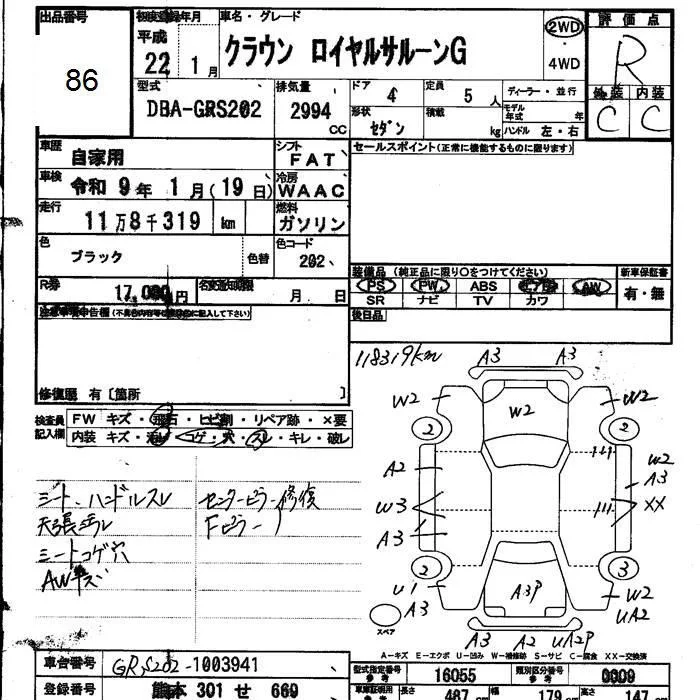 出品番号 初度登録年月 車名・グレード 評価点
86
平成 22 1月 クラウン ロイヤルサルーンG
2WD
4WD
R
外装 内装
C C
型式 排気量 ドア 定員 ディーラー・並行
DBA-GRS202 2994 CC 4 5人
モデル年式 年
形状 積載
セダン kg ハンドル 左・右
車歴 シフト セールスポイント(正常に機能するものに限ります)
自家用 FAT
車検 冷房
令和 9年 1月(19日) WAAC
走行 燃料
11万8千319 km ガソリン
色 色コード
ブラック 色替 202
装備品 (純正品に限り○をつけてください) 新車保証書
R券 名変通知期限
17,000円 月 日
PS PW ABS エアB AW 有・無
SR ナビ TV カワ
注意事項申告欄(不具合内容等も積極的に記入して下さい)
後日品
修復歴 有〔箇所 〕
検査員記入欄
FW キズ・飛石・ヒビ割・リペア跡・×要
内装 キズ・汚レ・コゲ・穴・スレ・キレ・破レ
118319km
A3 A3
W2 W2 W2
2 2
A2 W2
A3
W3 XX
A3
2 3
U1 A3P W2
A3 UA2
A3 A2 UA2P
スペア
シート、ハンドルスレ
天張ヨゴレ
シートコゲ穴
AWキズ
センターピラー修復
Fピラー 〃
A-キズ E-エクボ U-凹み W-補修跡 S-サビ C-腐食 XX-交換済
車台番号 GRS202-1003941
型式指定番号 参考 16055 類別区分番号 参考 0009
登録番号 熊本 301 せ 660
車庫証明用 参考 長さ 487 cm 幅 179 cm 高さ 147 cm